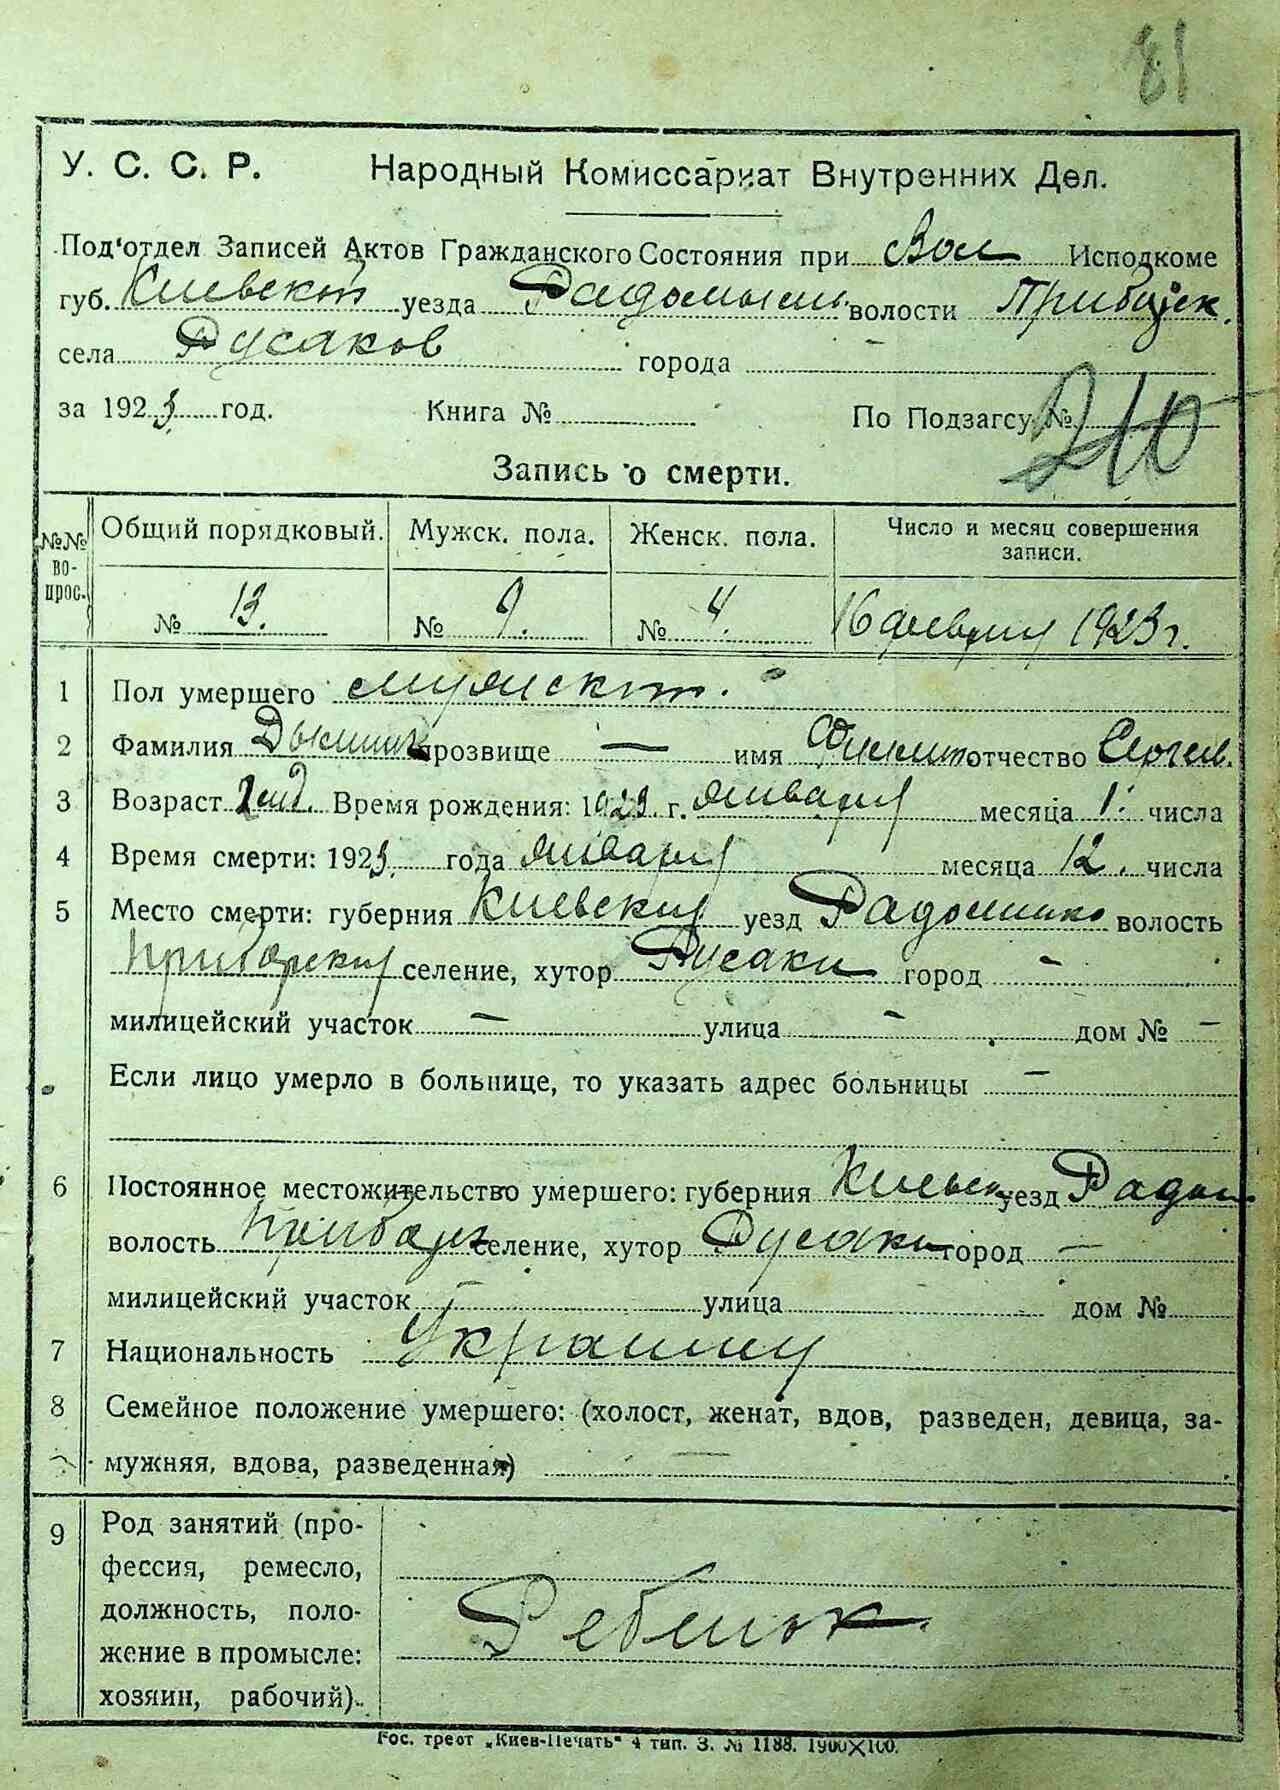 81
У. С. С. Р. Народный Комиссариат Внутренних Дел.
Под'отдел Записей Актов Гражданского Состояния при Вол Исполкоме
губ. Киевской уезда Радомысль. волости Прибор
села Русаков города
за 1923 год. Книга № По Подзагсу № 210
Запись о смерти.
№№ вопрос. Общий порядковый. Мужск. пола. Женск. пола. Число и месяц совершения записи.
№ 13. № 9. № 4. 16 февраля 1923 г.
1 Пол умершего мужской.
2 Фамилия прозвище — имя отчество Сергеев.
3 Возраст Время рождения: 1923 г. января месяца 1 числа
4 Время смерти: 1923 года января месяца 12. числа
5 Место смерти: губерния Киевская уезд волость
Приборская селение, хутор Русаки город -
милицейский участок — улица - дом № -
Если лицо умерло в больнице, то указать адрес больницы -
6 Постоянное местожительство умершего: губерния Киевск уезд Радом
волость Приборск селение, хутор Русаки город —
милицейский участок - улица дом №
7 Национальность
8 Семейное положение умершего: (холост, женат, вдов, разведен, девица, за-
мужняя, вдова, разведенная) —
9 Род занятий (про-
фессия, ремесло,
должность, поло-
жение в промысле:
хозяин, рабочий).
Ребенок.
Гос. трест „Киев-Печать" 4 тип. З. № 1188. 1900X100.